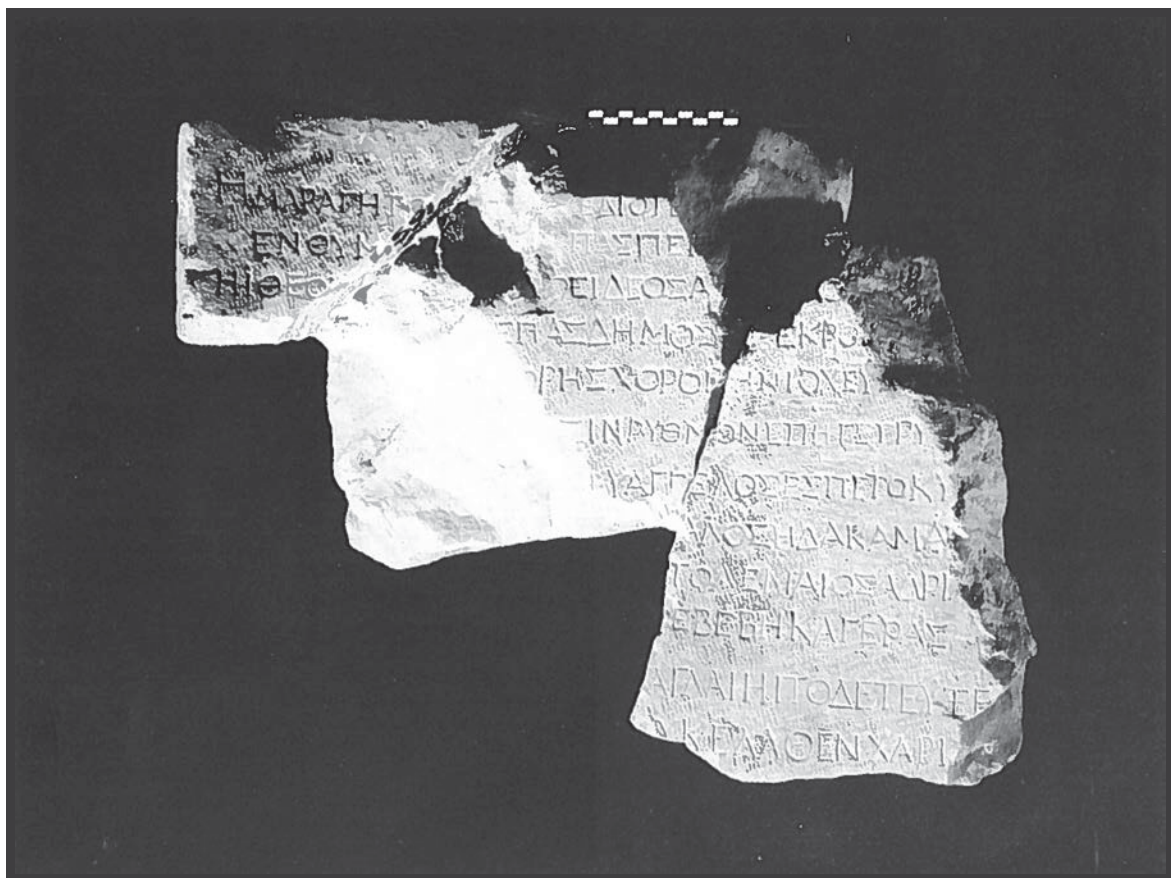 ΗΜΑΡΑΓΗ ΔΙΟΓ
ΕΝΘΥΜ ΠΑΣΠΕΙ
ΗΙΘΕΟ ΡΕΙΔΕΟΣΑ
ΠΑΣΔΗΜΟΣ ΕΚΡΟ
ΟΡΗΣΧΟΡΟΙ ΗΝΙΟΧΕΥ
ΙΝΡΥΘΜΟΝΕΠΗ ΕΥΡΥ
ΥΑΓΓΕΛΟΣΕΣΠΕΤΟΚΥ
ΛΟΣΗΔΑΚΑΜΑ
ΤΟΛΕΜΑΙΟΣΑΔΡΙ
ΕΒΕΒΗΚΑΓΕΡΑΣ
ΑΓΛΑΙΗΙΤΟΔΕΤΕΥΞΕ
ΚΕΙΛΘΕΝΧΑΡΙ